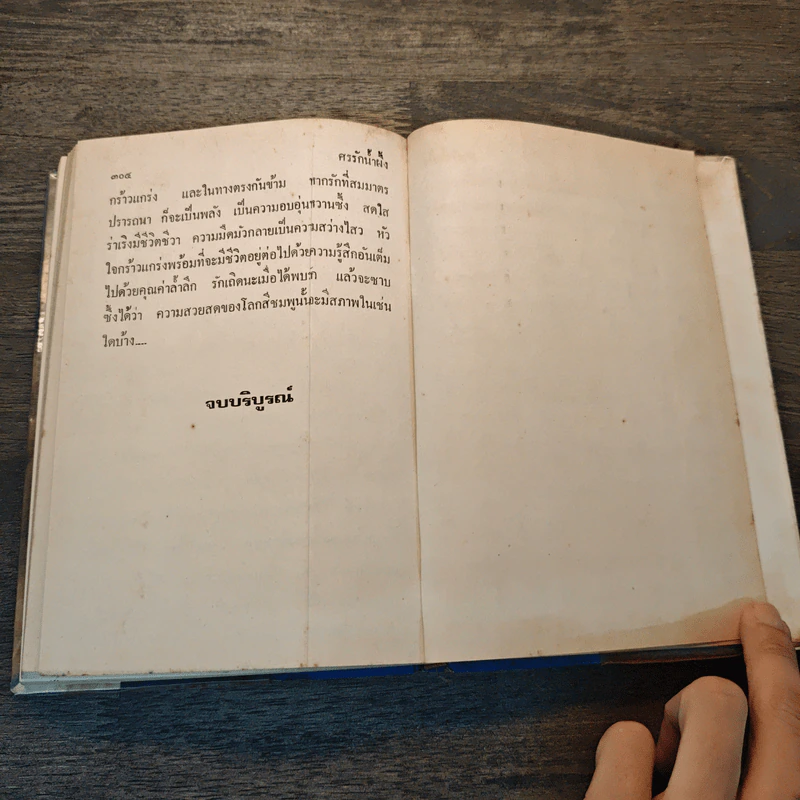 ๓๐๔
ศรรักน้ำผึ้ง
กร้าวแกร่ง และในทางตรงกันข้าม หากรักที่สมมาตร
ปรารถนา ก็จะเป็นพลัง เป็นความอบอุ่นหวานซึ้ง สดใส
ร่าเริงมีชีวิตชีวา ความมืดมัวกลายเป็นความสว่างไสว หัว
ใจกร้าวแกร่งพร้อมที่จะมีชีวิตอยู่ต่อไปด้วยความรู้สึกอันเต็ม
ไปด้วยคุณค่าล้ำลึก รักเถิดนะเมื่อได้พบรัก แล้วจะซาบ
ซึ้งได้ว่า ความสวยสดของโลกสีชมพูนั้นจะมีสภาพในเช่น
ใดบ้าง....
จบบริบูรณ์